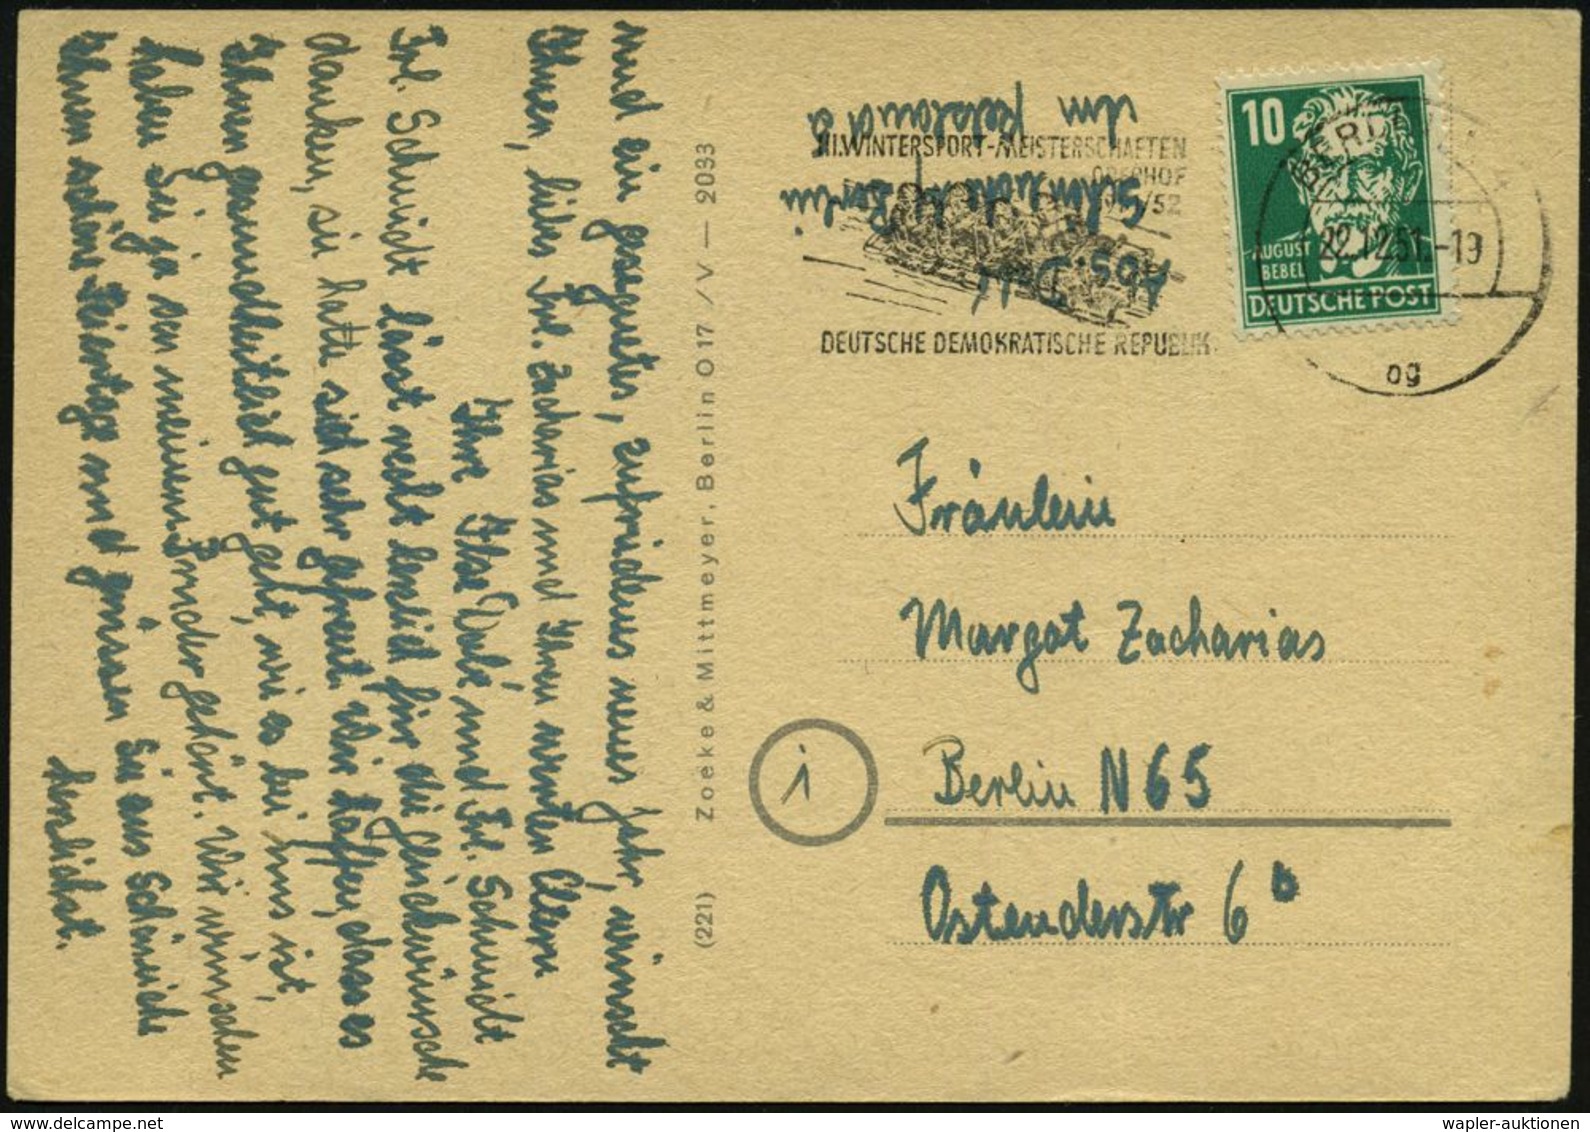 und ein gesegnetes, zufriedenes neues Jahr, wünscht
Ihnen, liebes Frl. Zacharias und Ihren werten Eltern
Ihre Ilse und Frl. Schmidt
Frl. Schmidt lässt recht herzlich für die Glückwünsche
danken, sie hatte sich sehr gefreut. Wir hoffen, dass es
Ihnen gesundheitlich gut geht, wie es bei uns ist,
haben Sie ja von meinem Bruder gehört. Wir wünschen
Ihnen schöne Feiertage und grüssen Sie aus Schöneiche
herzlichst.
(221) Zoeke & Mittmeyer, Berlin O 17 /V — 2033
Abs.
Schöneiche b/ Berlin
Im
III. WINTERSPORT-MEISTERSCHAFTEN
OBERHOF
/52
DEUTSCHE DEMOKRATISCHE REPUBLIK
10
AUGUST
BEBEL
DEUTSCHE POST
BERLIN
22.12.51.-19
og
Fräulein
Margot Zacharias
i
Berlin N 65
Ostenderstr 6 b
wapler-auktionen